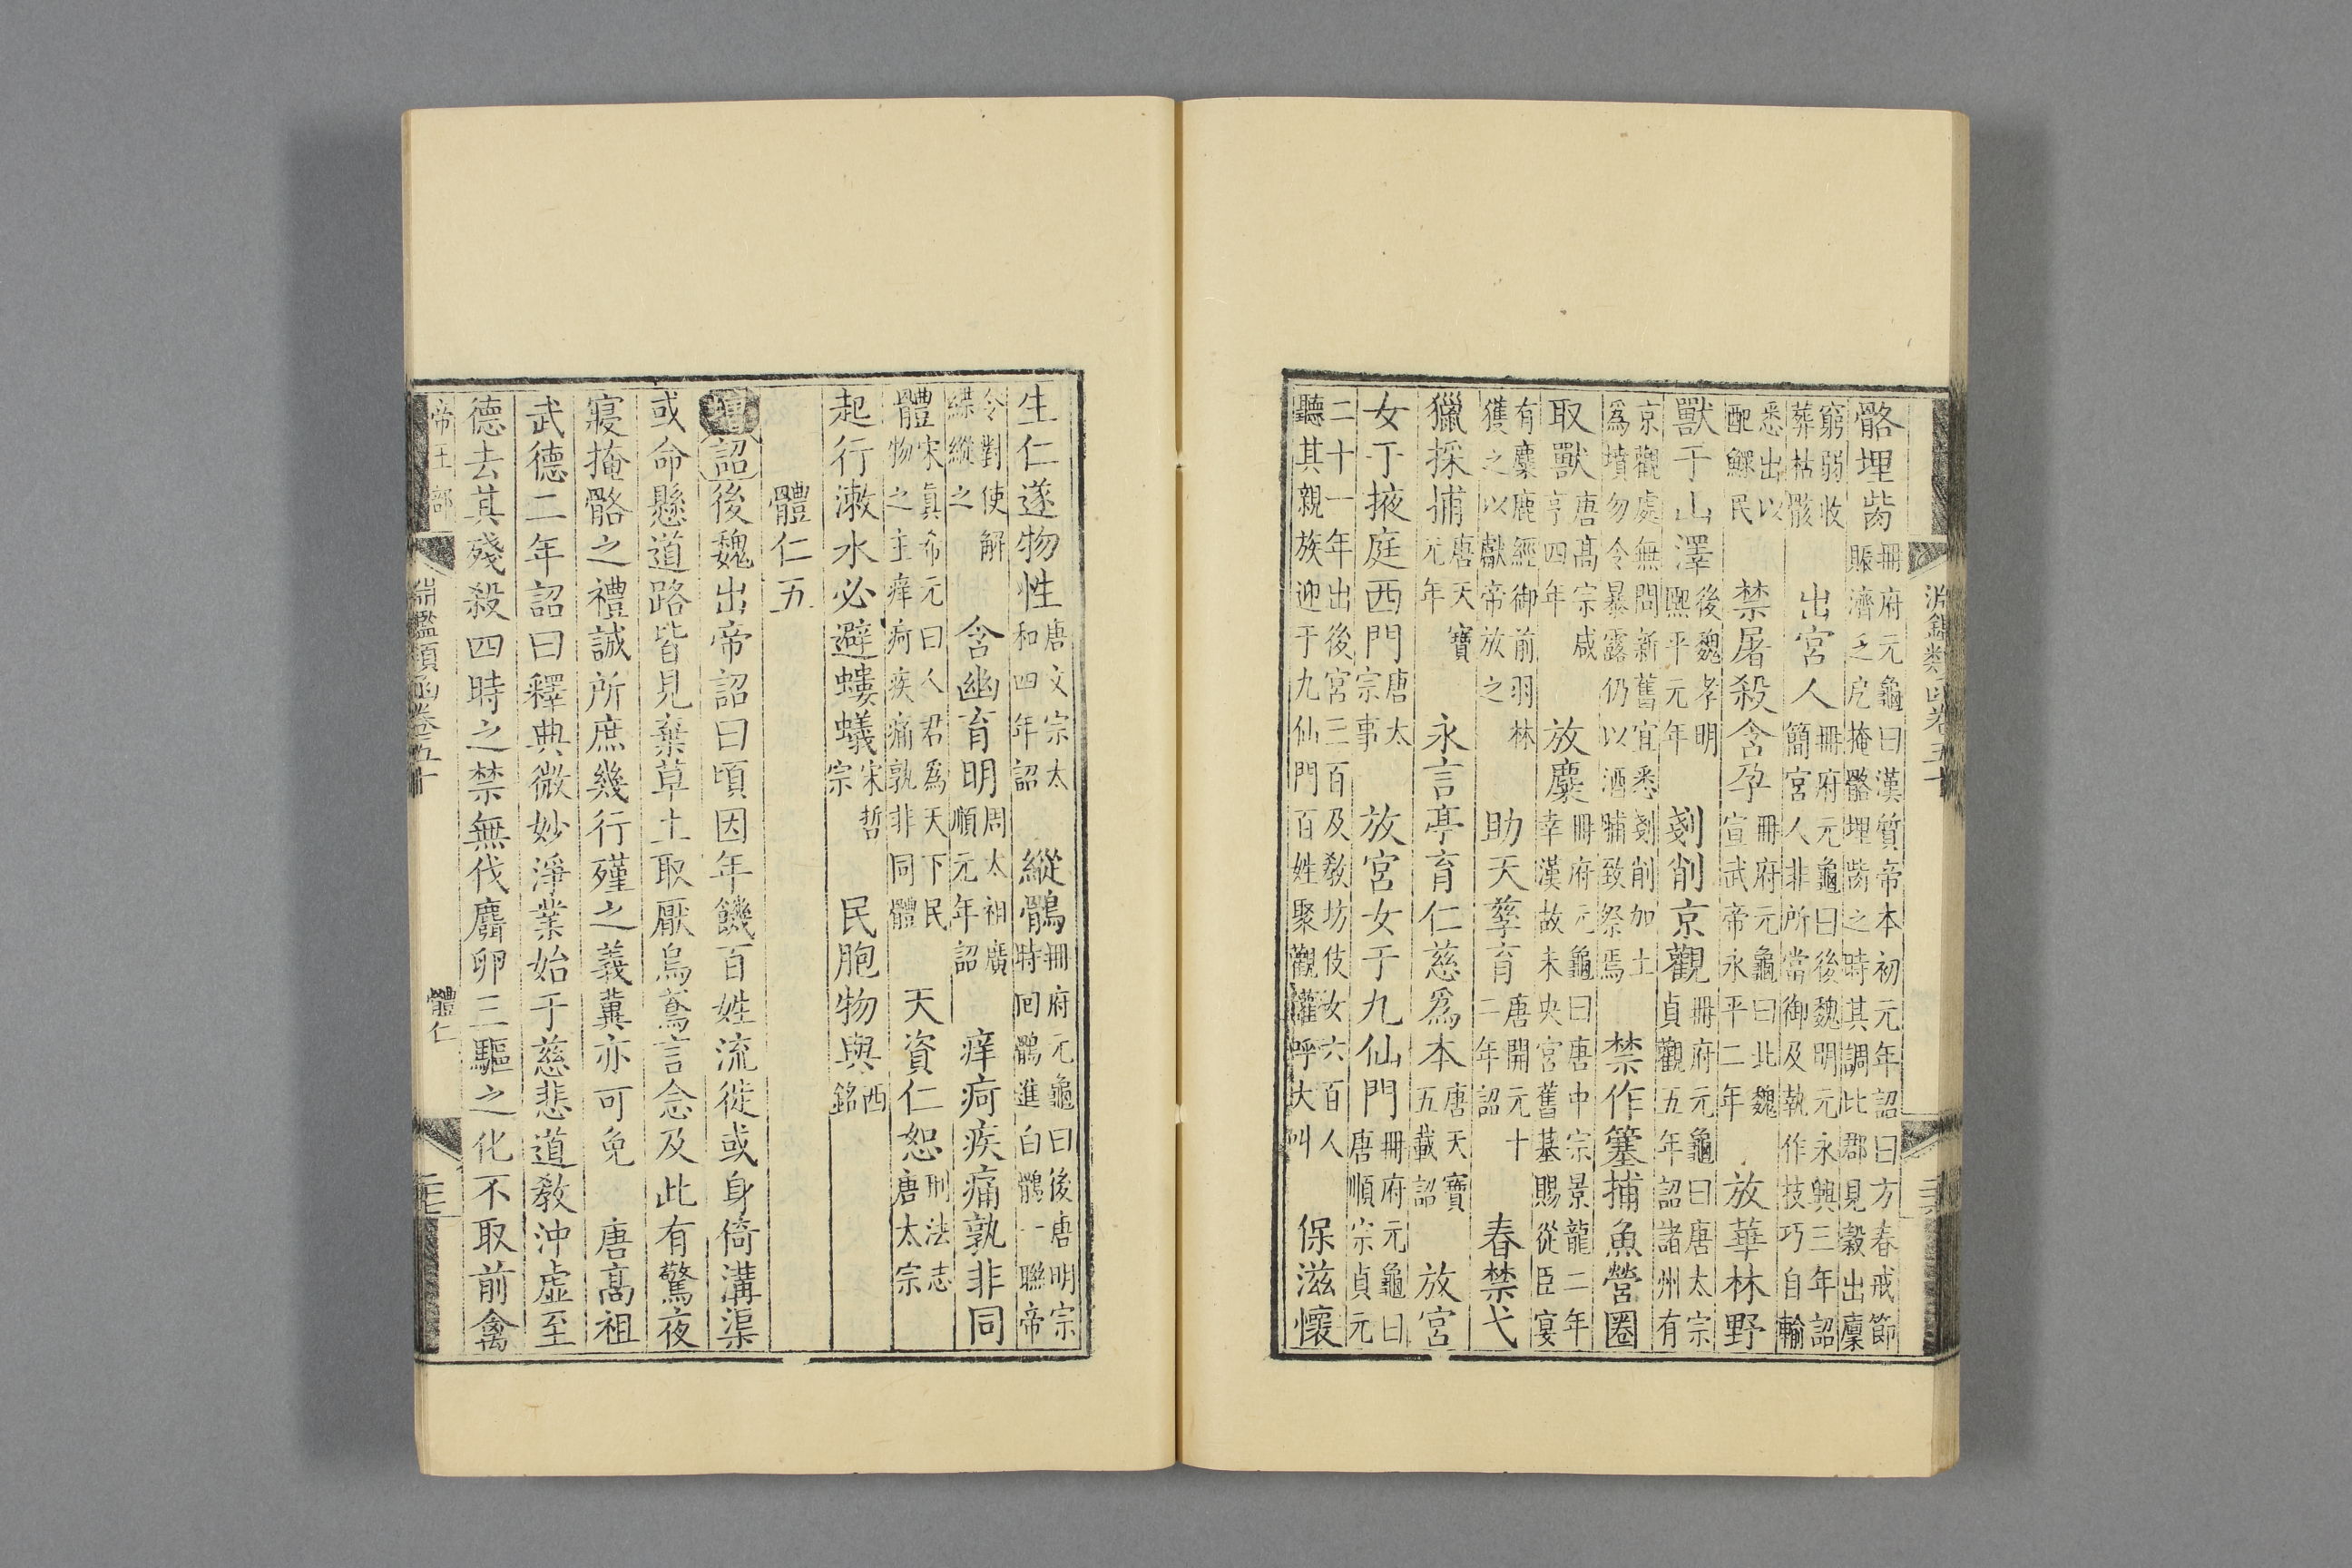 骼埋胔冊府元龜曰漢質帝本初元年詔曰方春戒節
賑濟乏戹掩骼埋胔之時其調比郡見穀出廩
窮弱收
葬枯骸　出宮人冊府元龜曰後魏明元永興三年詔
簡宮人非所當御及執作技巧自輸
悉出以
配鰥民　禁屠殺含孕冊府元龜曰北魏
宣武帝永平二年　放華林野
獸于山澤後魏孝明
熙平元年　剗削京觀冊府元龜曰唐太宗
貞觀五年詔諸州有
京觀處無問新舊宜悉剗削加土
爲墳勿令暴露仍以酒脯致祭焉　禁作簺捕魚營圈
取獸唐髙宗咸
亨四年　放麋冊府元龜曰唐中宗景龍二年
幸漢故未央宮舊基賜從臣宴
有麋鹿經御前羽林
獲之以獻帝放之　助天孳育唐開元十
二年詔　春禁弋
獵採捕唐天寶
元年　永言亭育仁慈爲本唐天寶
五載詔　放宮
女于掖庭西門唐太
宗事　放宮女于九仙門冊府元龜曰
唐順宗貞元
二十一年出後宮三百及敎坊伎女六百人
聽其親族迎于九仙門百姓聚觀懽呼大叫　保滋懷
生仁遂物性唐文宗太
和四年詔　縱鶻冊府元龜曰後唐明宗
時回鶻進白鶻一聯帝
令對使解
緤縱之　含幽育明周太祖廣
順元年詔　痒疴疾痛孰非同
體宋眞希元曰人君爲天下民
物之主痒疴疾痛孰非同體　天資仁恕刑法志
唐太宗
起行漱水必避螻蟻宋哲
宗　民胞物與西
銘
體仁五
增詔後魏出帝詔曰頃因年饑百姓流徙或身倚溝渠
或命懸道路皆見棄草土取厭烏鳶言念及此有驚夜
寢掩骼之禮誠所庶幾行殣之義冀亦可免　唐髙祖
武德二年詔曰釋典微妙淨業始于慈悲道敎沖虛至
德去其殘殺四時之禁無伐麛卵三驅之化不取前禽
帝王部　淵鑑類函卷五十　體仁